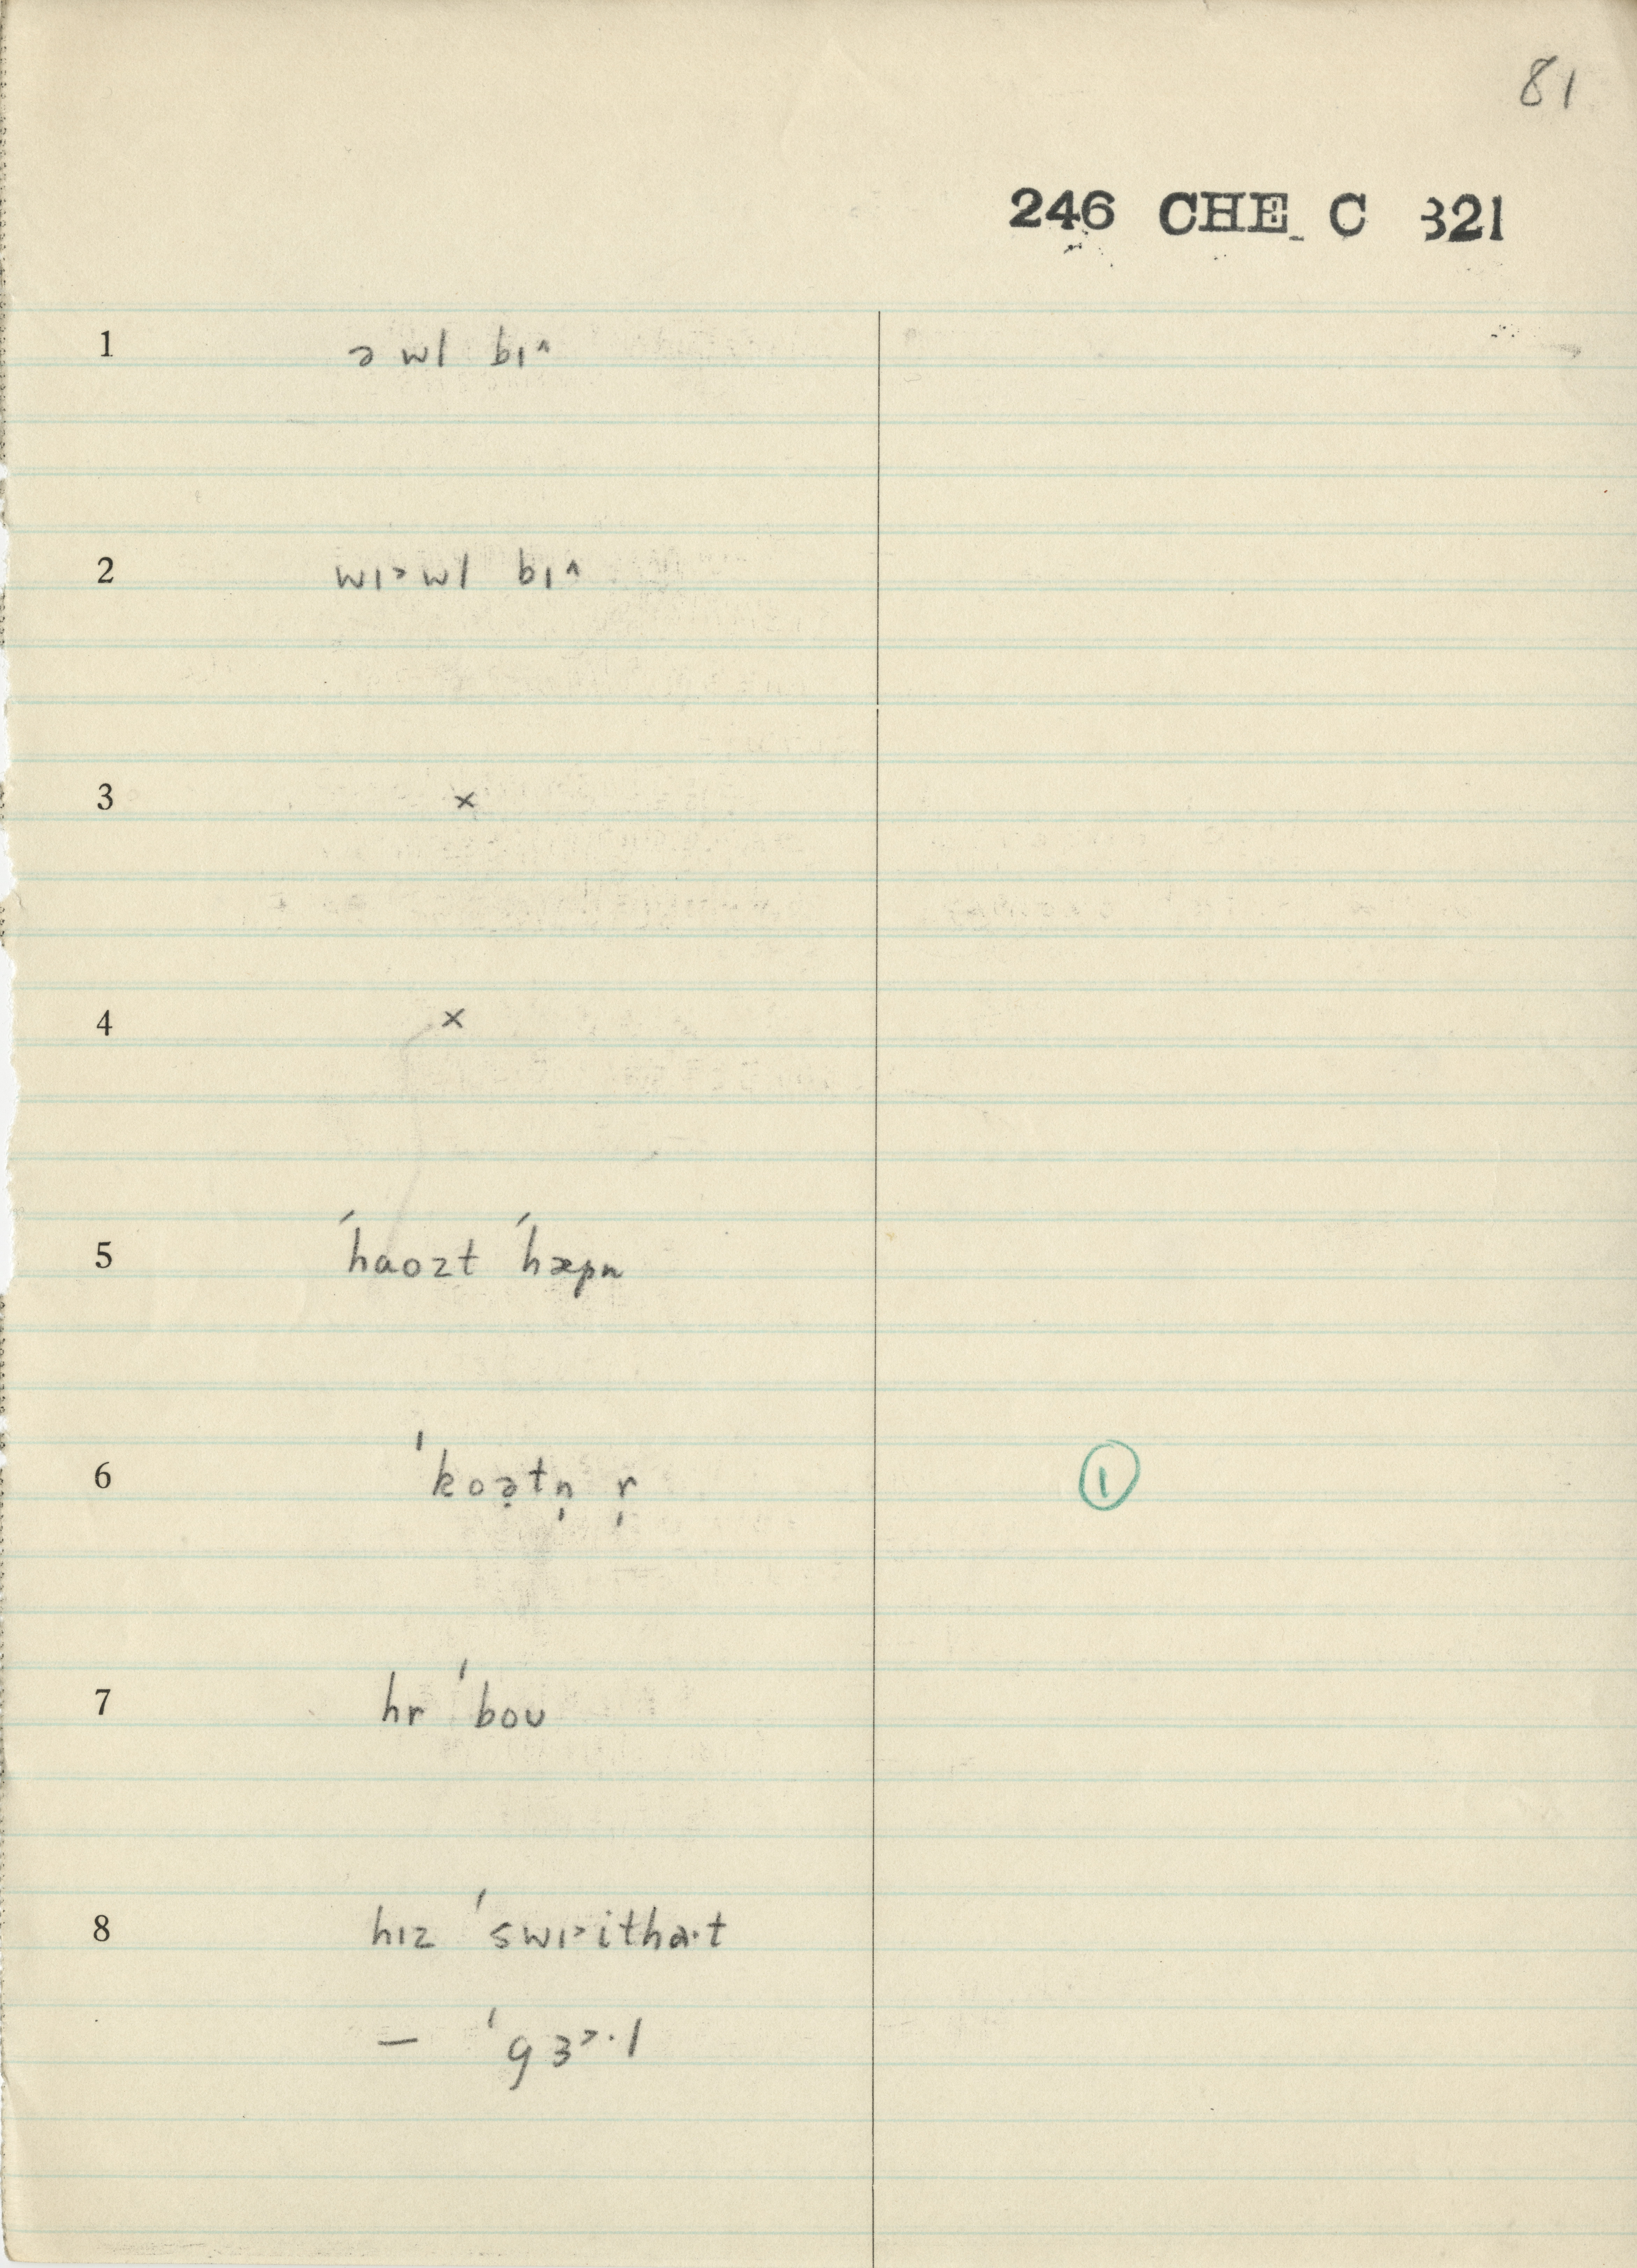 81
246 CHE C 321
1 ə wl bɪ^
2 wɪ>wl bɪ^
3 ×
4 ×
5 ˈhaozt ˈhæpn
6 ˈkoə̣tn̩ r̩ ①
7 hr ˈboʊ
8 hɪz ˈswɪ>ithaˑt
— ˈgɜ>ˑl